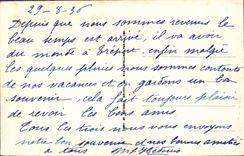 29-8-36
Depuis que nous sommes revenus le
beau temps est arrivé, il va avoir
du monde à Tréport, enfin malgré
les quelques pluies nous sommes contents
de nos vacances et on gardons un bon
souvenir, cela fait toujours plaisir
de revoir les bons amis
Tous les trois nous vous envoyons
notre bon souvenir et nos bonnes amitiés
à tous